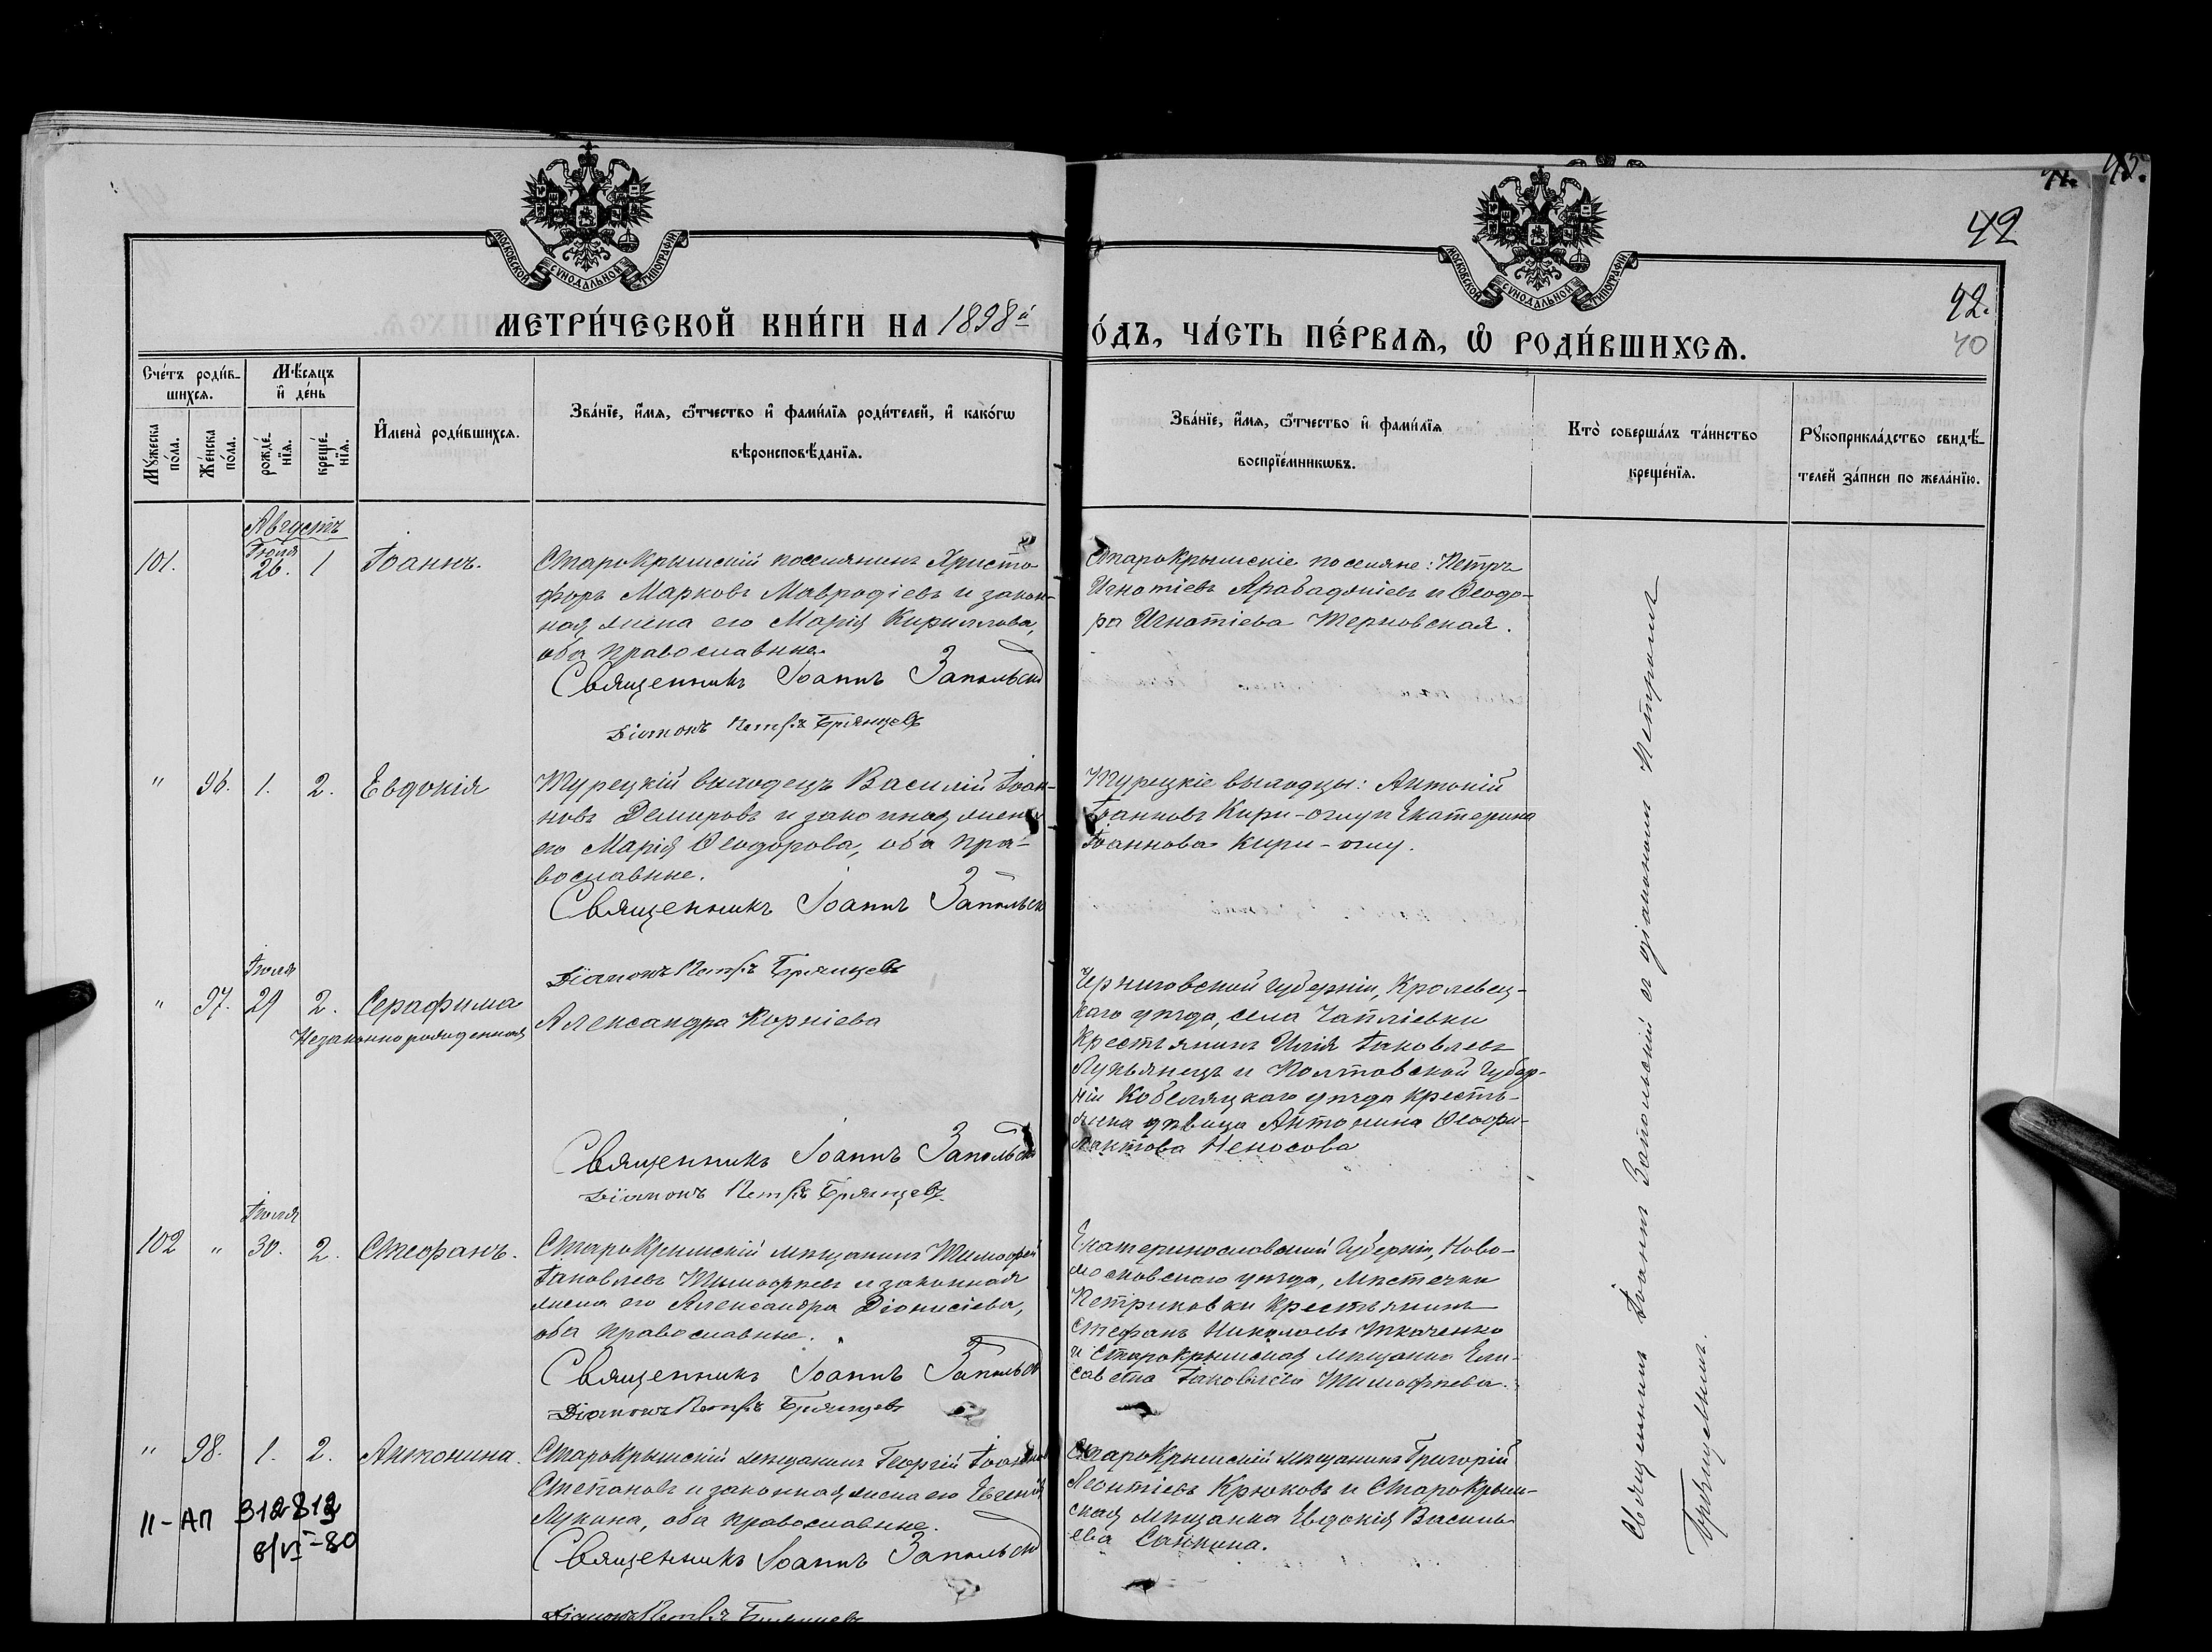 42
42.
40
МОСКОВСКОЙ СѴНОДАЛЬНОЙ ТИПОГРАФІИ
МОСКОВСКОЙ СѴНОДАЛЬНОЙ ТИПОГРАФІИ
МЕТРИ́ЧЕСКОЙ КНИ́ГИ НА 1898й
О́ДЪ, ЧА́СТЬ ПЕ́РВАѦ, Ѡ҆ РОДИ́ВШИХСѦ.
Сче́тъ роди́в-
шихсѧ.
Мѣ́сѧцъ
и҆ де́нь
Мꙋ́жеска по́ла.
Же́нска по́ла.
рожде́-
нїѧ.
креще́-
нїѧ.
И҆мена̀ роди́вшихсѧ.
Зва́нїе, и҆́мѧ, ѻ҆́тчество и҆ фами́лїѧ роди́телей, и҆ како́гѡ
вѣроисповѣ́данїѧ.
Зва́нїе, и҆́мѧ, ѻ҆́тчество и҆ фами́лїѧ
воспрїе́мникѡвъ.
Кто̀ соверша́лъ та́инство
креще́нїѧ.
Рꙋкоприкла́дство свидѣ́-
телей за́писи по жела́нїю.
Августъ
Іюля
101. 26. 1 Іоаннъ.
СтароКрымскій поселянинъ Христо-
форъ Марковъ Мавродіевъ и закон-
ная жена его Марія Кириллова,
оба православные.
Священникъ Іоаннъ Запольскі
Діаконъ Петръ Брянцевъ
СтароКрымскіе поселяне: Петръ
Игнатіевъ Арабаджіевъ и Ѳеодо-
ра Игнатіева Терновская.
" 96. 1. 2. Евдокія
Турецкій выходецъ Василій Іоан-
новъ Демировъ и законная жена
его Марія Ѳеодорова, оба пра-
вославные.
Священникъ Іоаннъ Запольск
Діаконъ Петръ Брянцевъ
Турецкіе выходцы: Антоній
Іоанновъ Кири-оглу и Екатерина
Іоаннова Кири-оглу.
Іюля
" 97. 29 2. Серафима
Незаконнорожденная
Александра Корніева
Священникъ Іоаннъ Запольскі
Діаконъ Петръ Брянцевъ
Черниговской губерніи, Кролевец-
каго уѣзда, села Чапліевки
Крестьянинъ Илія Іаковлевъ
Лукьянецъ и Полтавской губер-
ніи Кобеляцкаго уѣзда кресть-
янка дѣвица Антонина Ѳеофи-
лактова Неносова
Іюля
102 " 30. 2. Стефанъ.
СтароКрымскій мѣщанинъ Тимофей
Іаковлевъ Тимофѣевъ и законная
жена его Александра Діонисіева,
оба православные.
Священникъ Іоаннъ Запольскі
Діаконъ Петръ Брянцевъ
Екатеринославской Губерніи, Ново-
московскаго уѣзда, мѣстечка
Петриковки Крестьянинъ
Стефанъ Николаевъ Ткаченко
и СтароКрымская мѣщанка Ели-
савета Іаковлева Тимофѣева.
" 98. 1. 2. Антонина.
СтароКрымскій мѣщанинъ Георгій Іоаннов
Степановъ и законная жена его Евгенія
Лукина, оба православные.
Священникъ Іоаннъ Запольскі
Діаконъ Петръ Брянцевъ
СтароКрымскій мѣщанинъ Григорій
Леонтіевъ Крюковъ и СтароКрым-
ская мѣщанка Евдокія Василь-
ева Санкина.
II-АП
6/VI-80
Священникъ Іоаннъ Запольскій съ діакономъ Петромъ
Брянцевымъ.